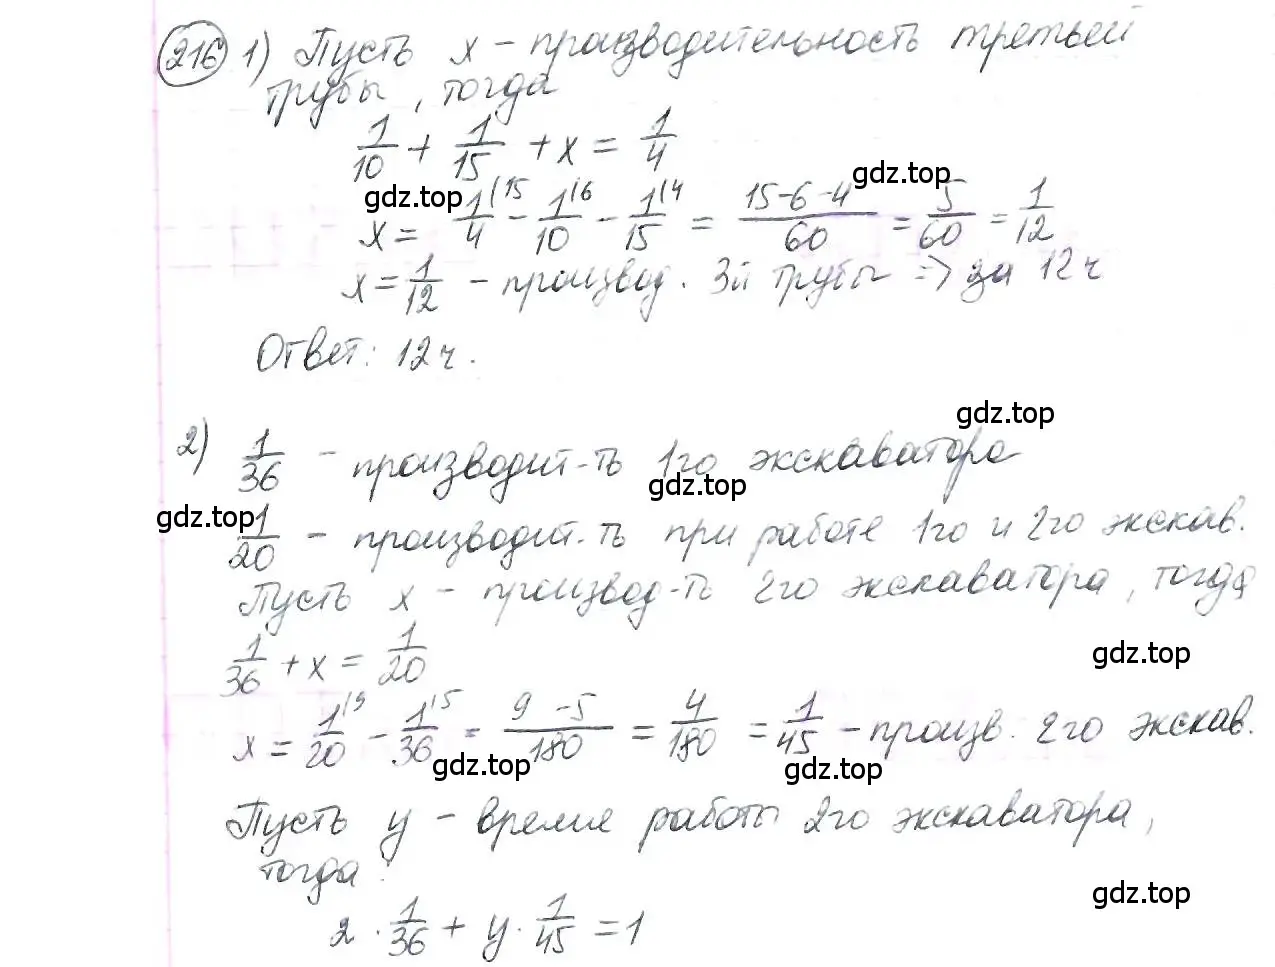 216 1) Пусть x - производительность третьей
трубы, тогда
1/10 + 1/15 + x = 1/4
gdz.top
gdz.top
x = 1/4(15 - 1/10(6 - 1/15(4 = (15-6-4)/60 = 5/60 = 1/12
x = 1/12 - производ. 3й трубы => за 12ч
Ответ: 12ч.
gdz.top
2) 1/36 - производит-ть 1го экскаватора
gdz.top
gdz.top
1/20 - производит-ть при работе 1го и 2го экскав.
Пусть x - производ-ть 2го экскаватора, тогда
1/36 + x = 1/20
gdz.top
x = 1/20(9 - 1/36(5 = (9-5)/180 = 4/180 = 1/45 - произв. 2го экскав.
gdz.top
gdz.top
Пусть y - время работы 2го экскаватора,
тогда:
gdz.top
2 · 1/36 + y · 1/45 = 1